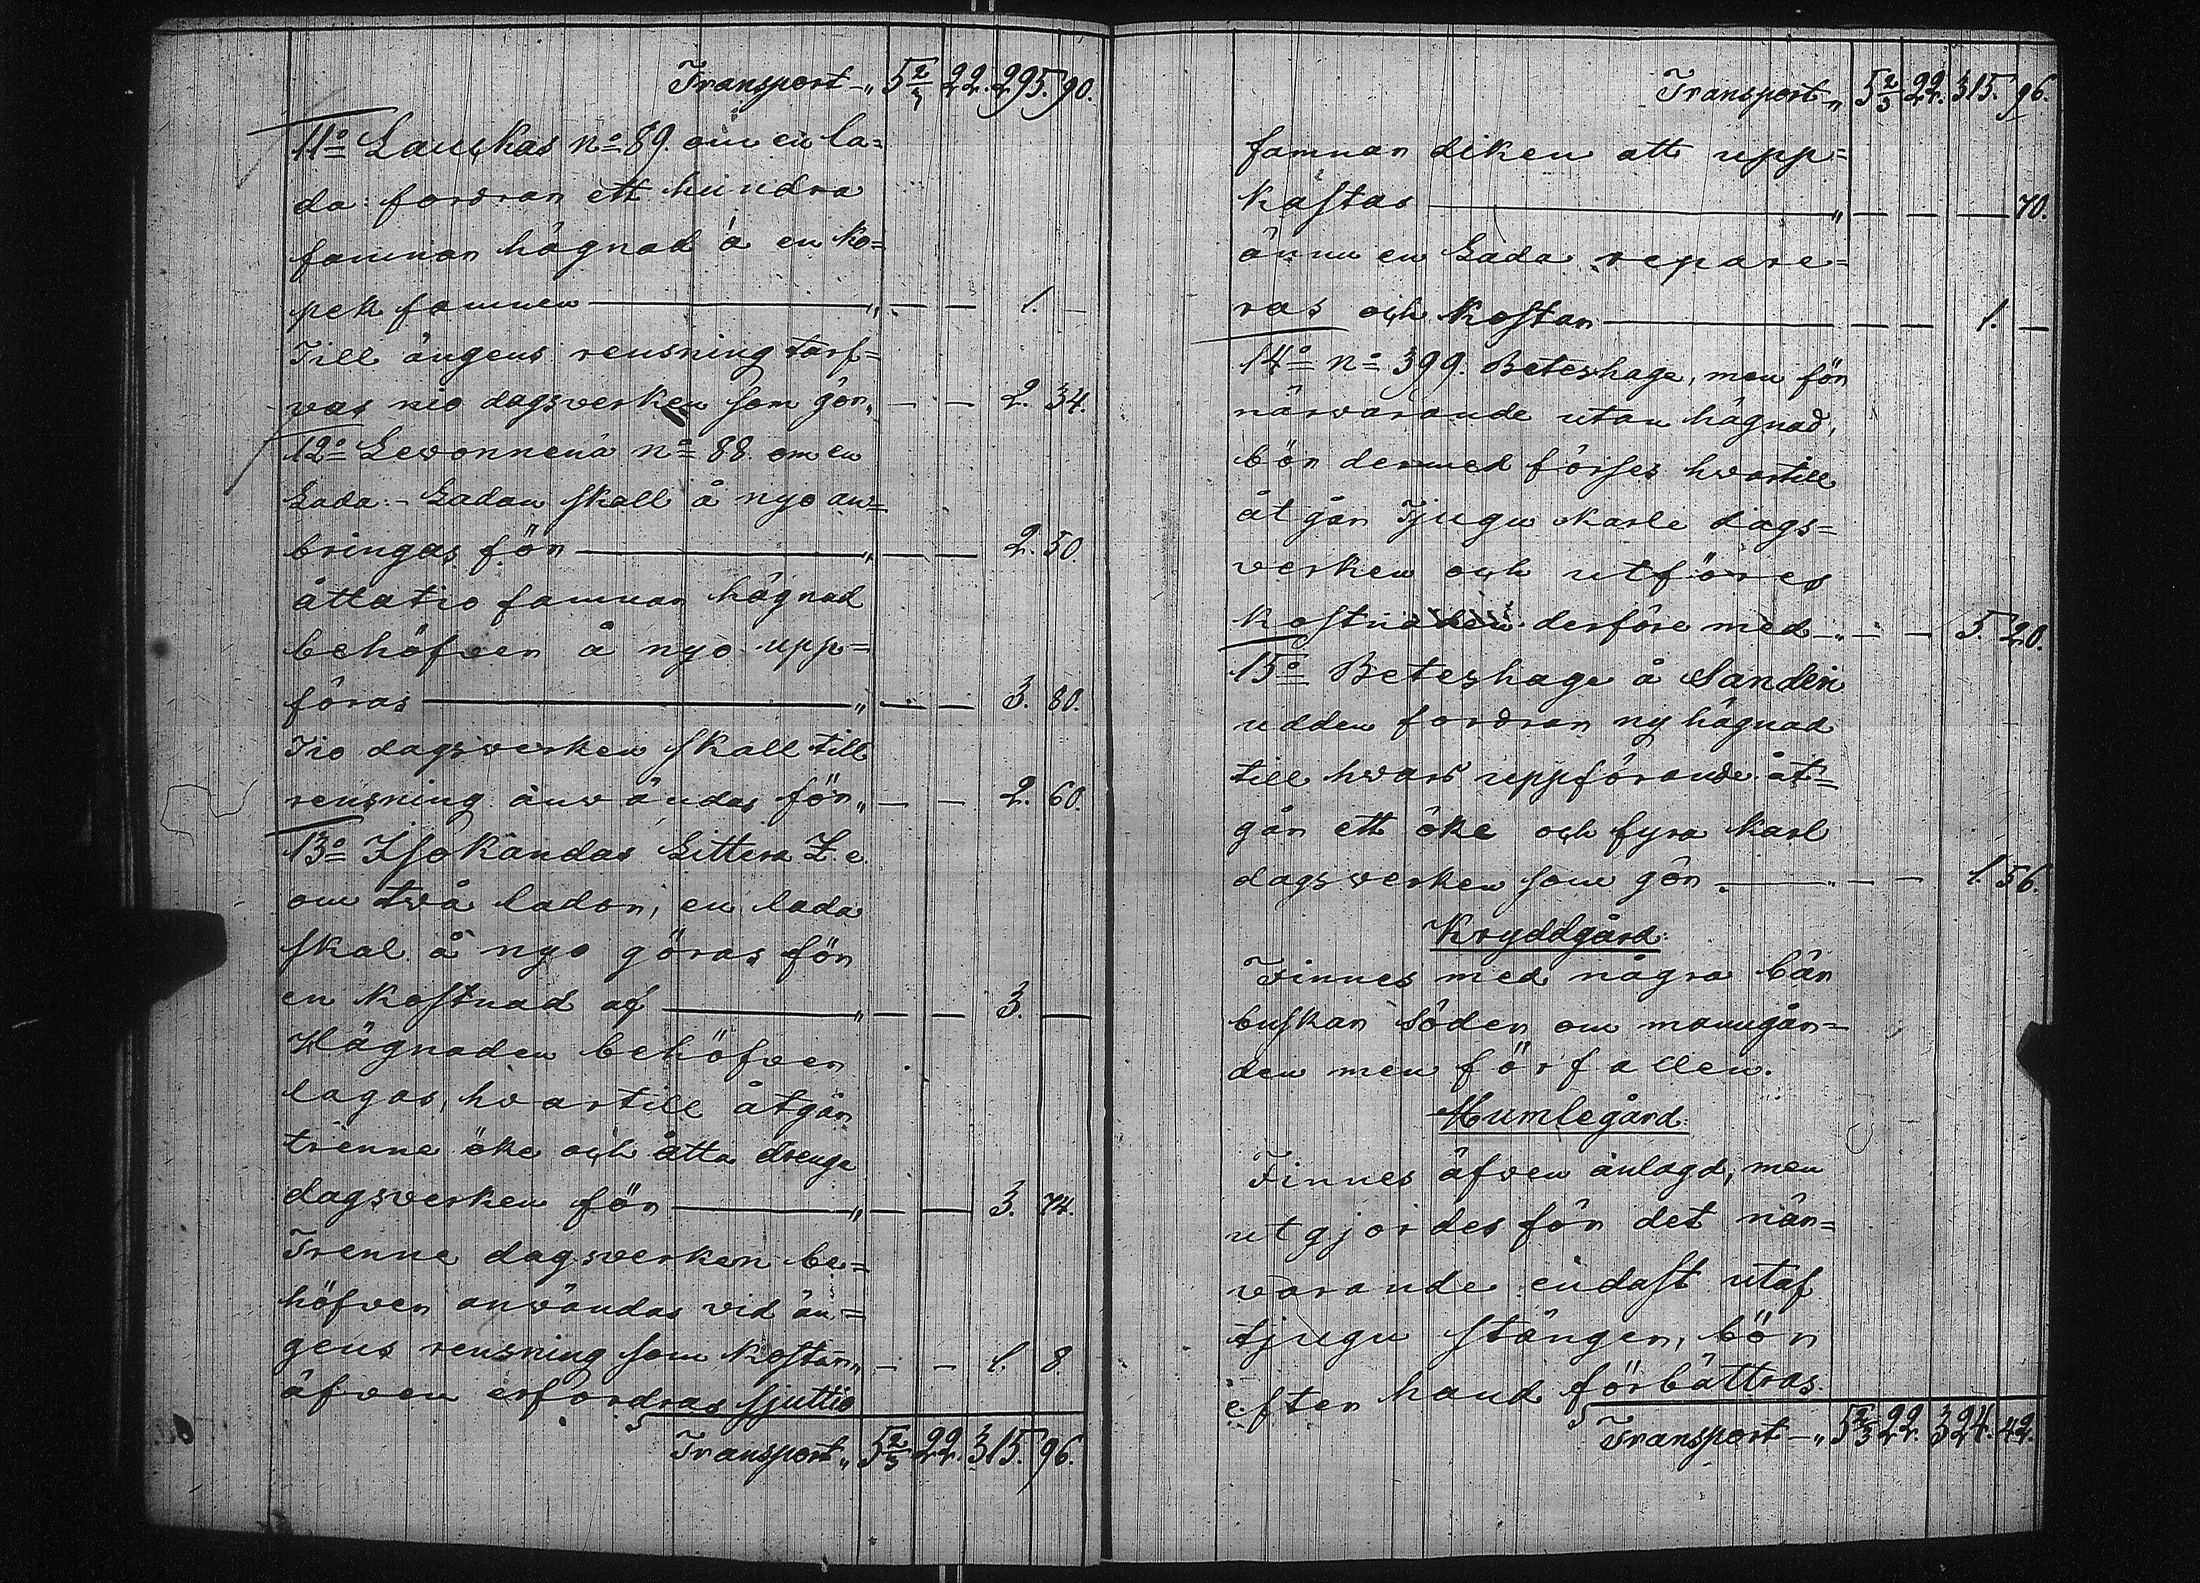 Transport „ 5 2/3 22. 295. 90.
11o Lauckas no 89. om en la=
da: fordrar ett hundra
famnar hägnad à en ko=
pek famnen — „ — — 1. —
Till ängens rensning tarf=
vas nio dagsverken som gör „ — — 2. 34.
12o Levonnenä no 88. om en
Lada. - Ladan skall å nyo an=
bringas för — „ — — 2. 50.
åttatio famnar hägnad
behöfver å nyo upp=
föras — „ — — 3. 80.
Tio dagsverken skall till
rensning användas för „ — — 2. 60.
13o Isokandas Littera Z. e.
om två lador, en lada
skal å nyo göras för
en kostnad af — „ — — 3. —
Hägnaden behöfver
lagas, hvartill åtgår
trenne öke och åtta drenge
dagsverken för — „ — — 3. 74.
Trenne dagsverken be=
höfver användas vid än=
gens rensning som kostar „ — — 1. 8.
äfven erfordras sjuttio
Transport „ 5 2/3 22. 315. 96.
Transport „ 5 2/3 22. 315. 96.
famnar diken att upp=
kastas — „ — — — 70.
ännu en Lada repare=
ras och kostar — — — 1. —
14o no 399. Beteshage, men för
närvarande utan hägnad,
bör dermed förses hvartill
åtgår Tjugu Karle dags=
verken och utföres
kostnaden derföre med „ — — 5. 20.
15o Beteshage å Sandin
udden fordrar ny hägnad
till hvars uppförande åt=
går ett öke och fyra karl
dagsverken som gör — „ — — 1. 56.
Kryddgård.
Finnes med några bär
buskar söder om manngår=
den men förfallen.
Humlegård.
Finnes äfven anlagd, men
utgjordes för det när=
varande endast utaf
tjugu stänger, bör
efter hand förbättras.
Transport — „ 5 2/3 22. 324. 42.